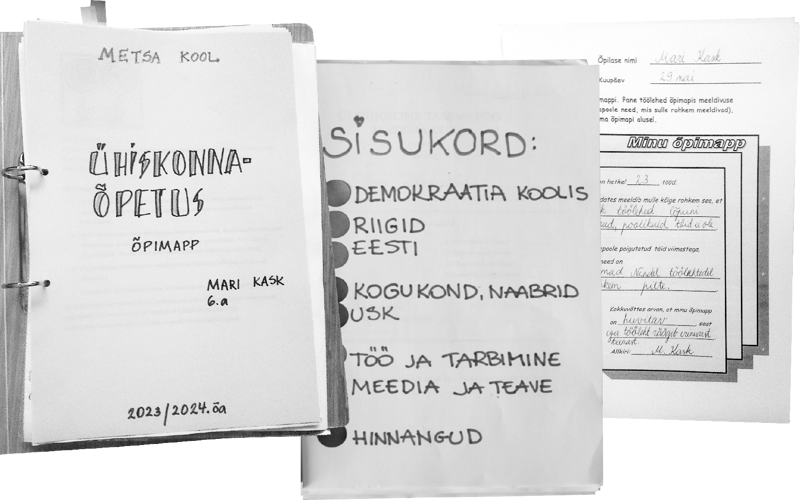 METSA KOOL
ÜHISKONNA-
ÕPETUS
ÕPIMAPP
MARI KASK
6.a
2023/2024.õa
SISUKORD:
DEMOKRAATIA KOOLIS
RIIGID
EESTI
KOGUKOND, NAABRID
USK
TÖÖ JA TARBIMINE
MEEDIA JA TEAVE
HINNANGUD
Õpilase nimi Mari Kask
Kuupäev 29. mai
mappi. Pane töölehed õpimapis meeldivuse
poole need, mis sulle rohkem meeldivad),
ma õpimapi alusel.
Minu õpimapp
on hetkel 23 tööd.
dates meeldib mulle kõige rohkem see, et
töölehed lõpuni
poolikuid töid ei ole
poole paigutatud töid viimastega,
need on
mad. Nendel töölehtedel
pilte.
Kokkuvõttes arvan, et minu õpimapp
on huvitav, sest
iga tööleht räägib erinevast
teemast
Allkiri: M. Kask